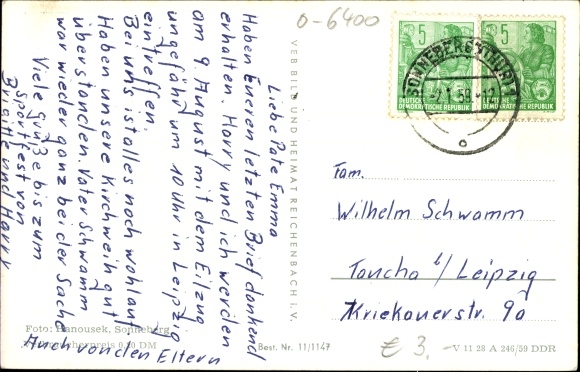 Liebe Pate Emma
Haben Eueren letzten Brief dankend
erhalten Harry und ich werden
am 9 August mit dem Eilzug
ungefähr um 10 Uhr in Leipzig
eintreffen.
Bei uns ist alles noch wohlauf
Haben unsere Kirchweih gut
überstanden. Vater Schwamm
war wieder ganz bei der Sache
Viele Grüße bis zum
Sportfest von
Brigitte und Harry
Auch von den Eltern
Foto: Hanousek, Sonneberg
Verbraucherpreis 0,20 DM
VEB BILD UND HEIMAT REICHENBACH i. V.
Best. Nr. 11/1147
0-6400
5
DEUTSCHE
DEMOKRATISCHE REPUBLIK
5
DEUTSCHE
DEMOKRATISCHE REPUBLIK
SONNEBERG (THÜR) 1
Fam.
Wilhelm Schwamm
Taucha b/Leipzig
Kriekauerstr. 9a
€ 3,-
V 11 28 A 246/59 DDR